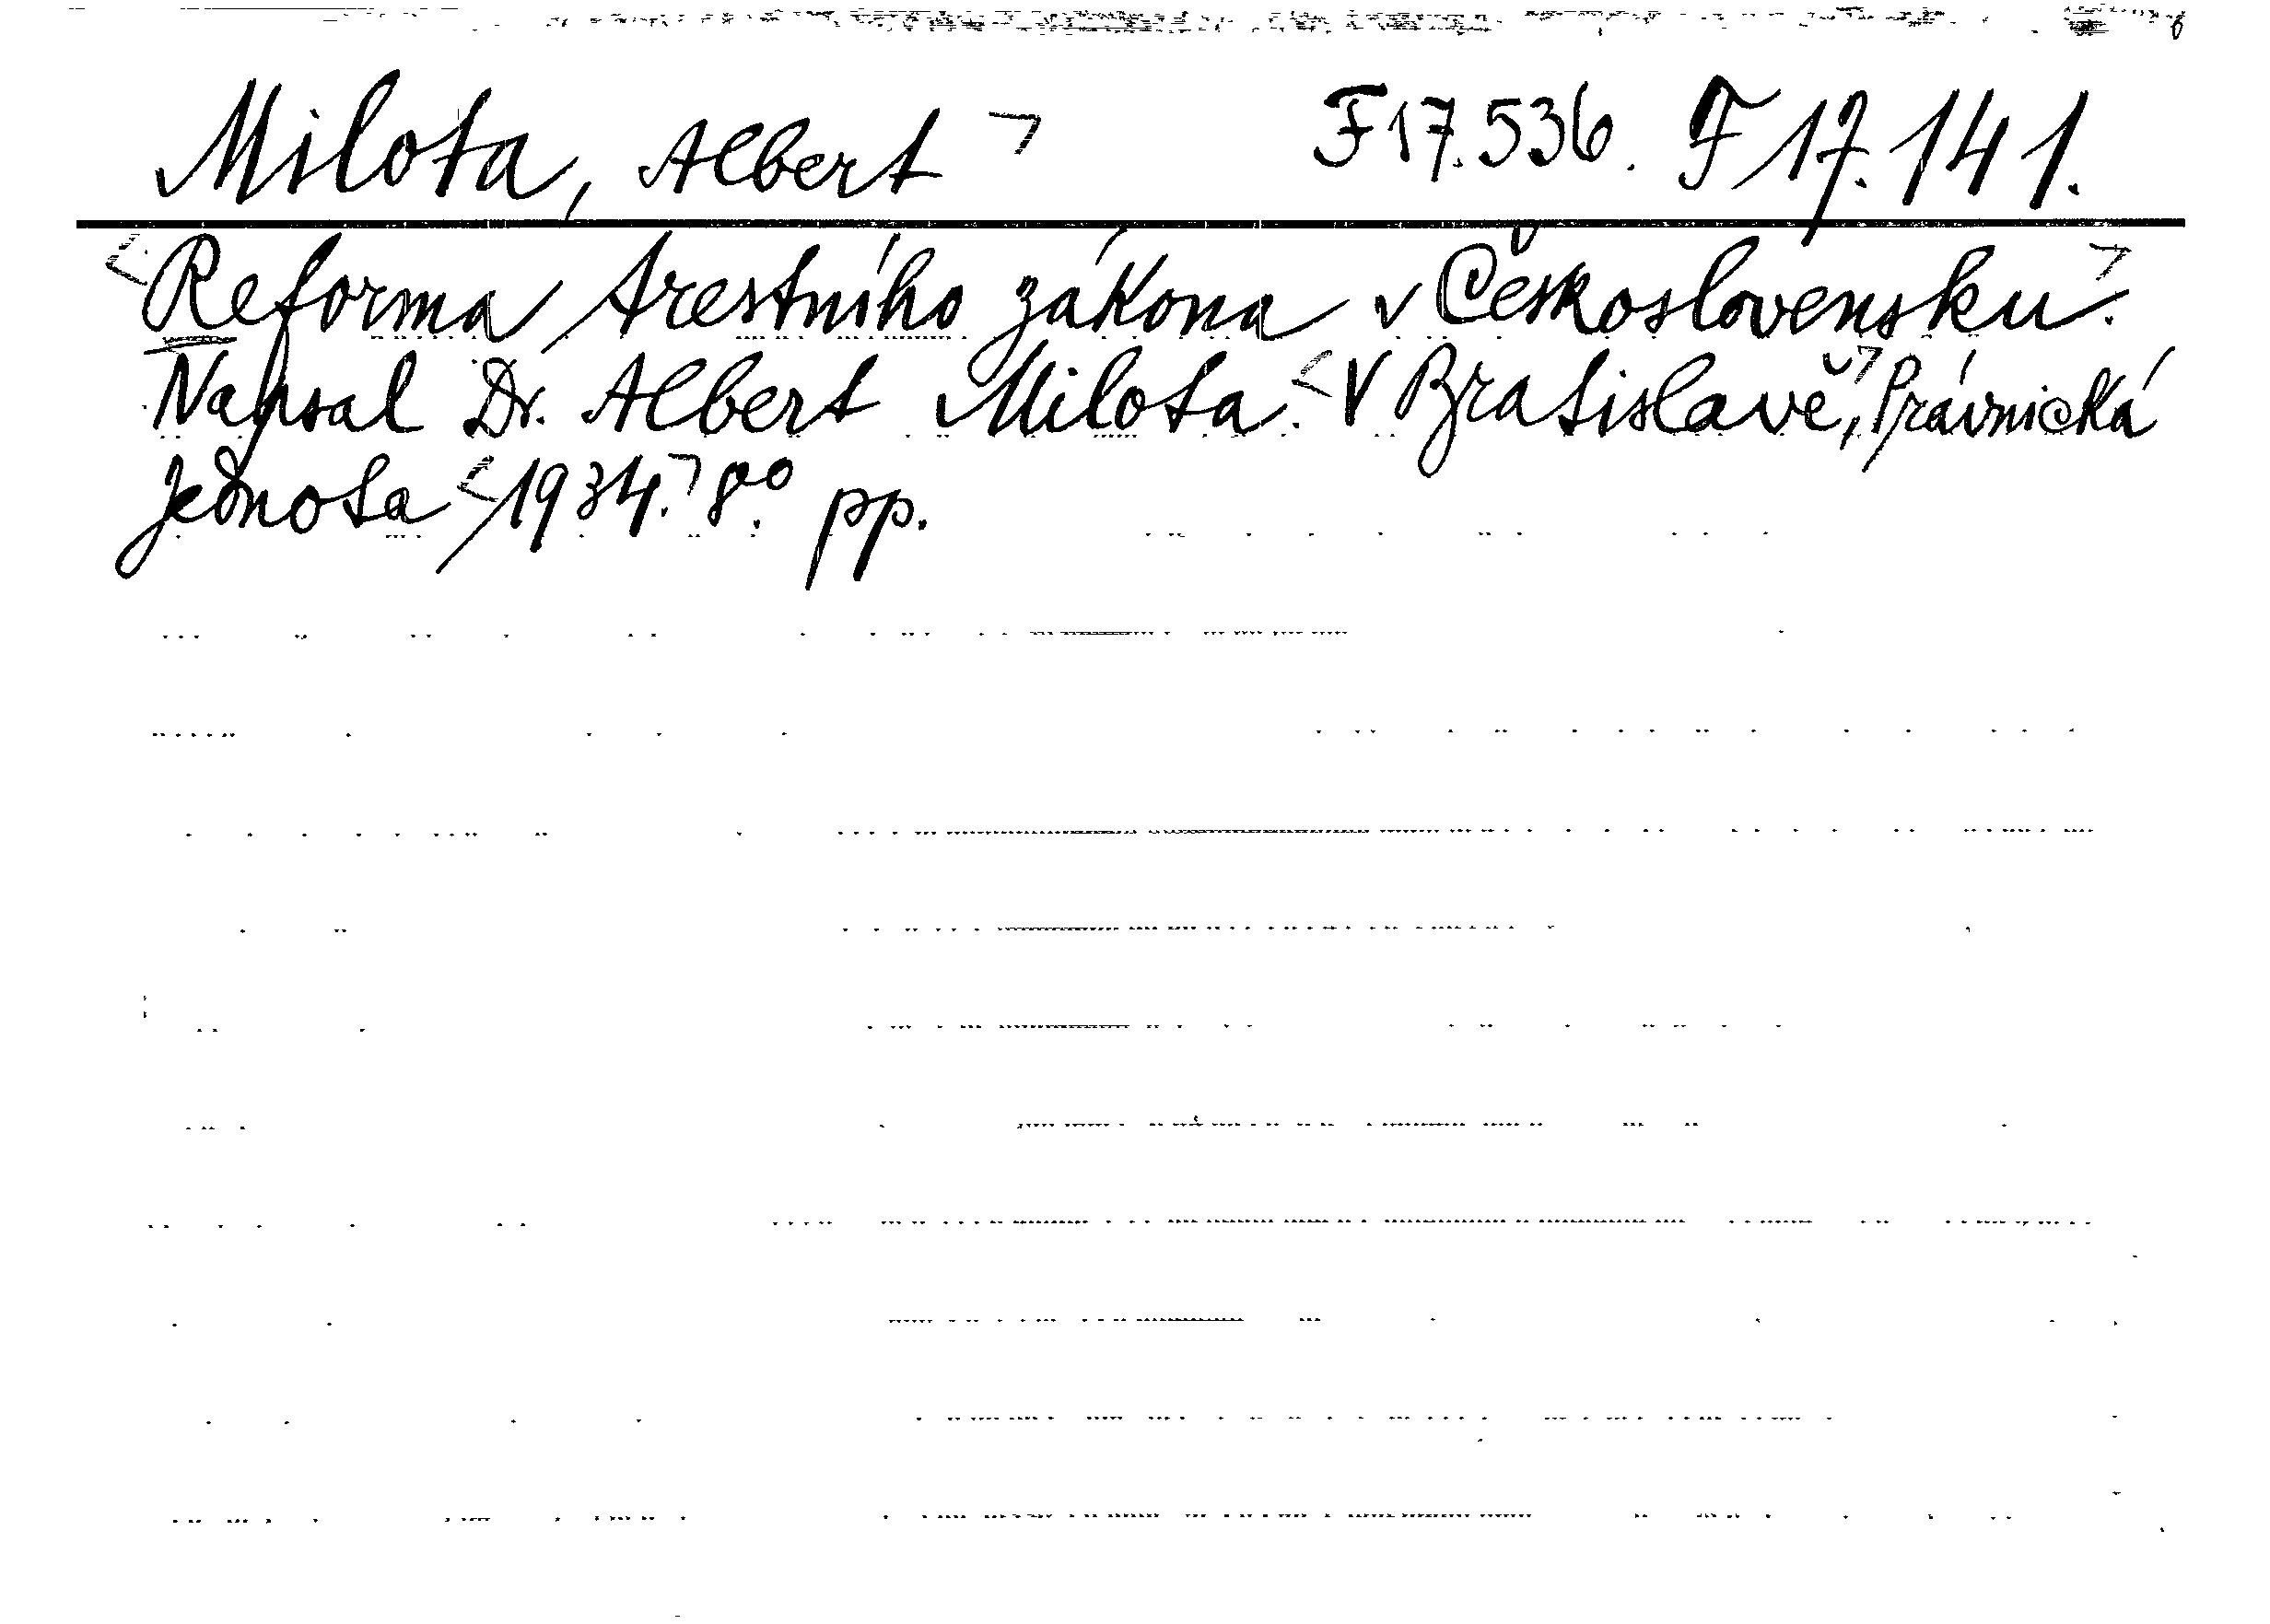 Milota, Albert F17.536. F17.141.
Reforma trestního zákona v Československu.
Napsal Dr. Albert Milota. V Bratislavě, Právnická
jednota 1934. 8.º pp.